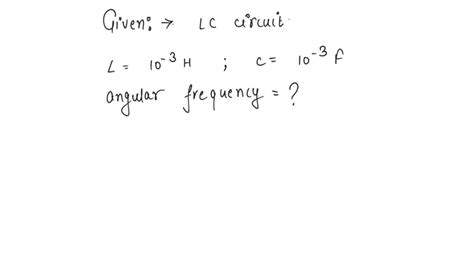 Given: → LC circuit
L = 10⁻³ H ; C = 10⁻³ F
angular frequency = ?